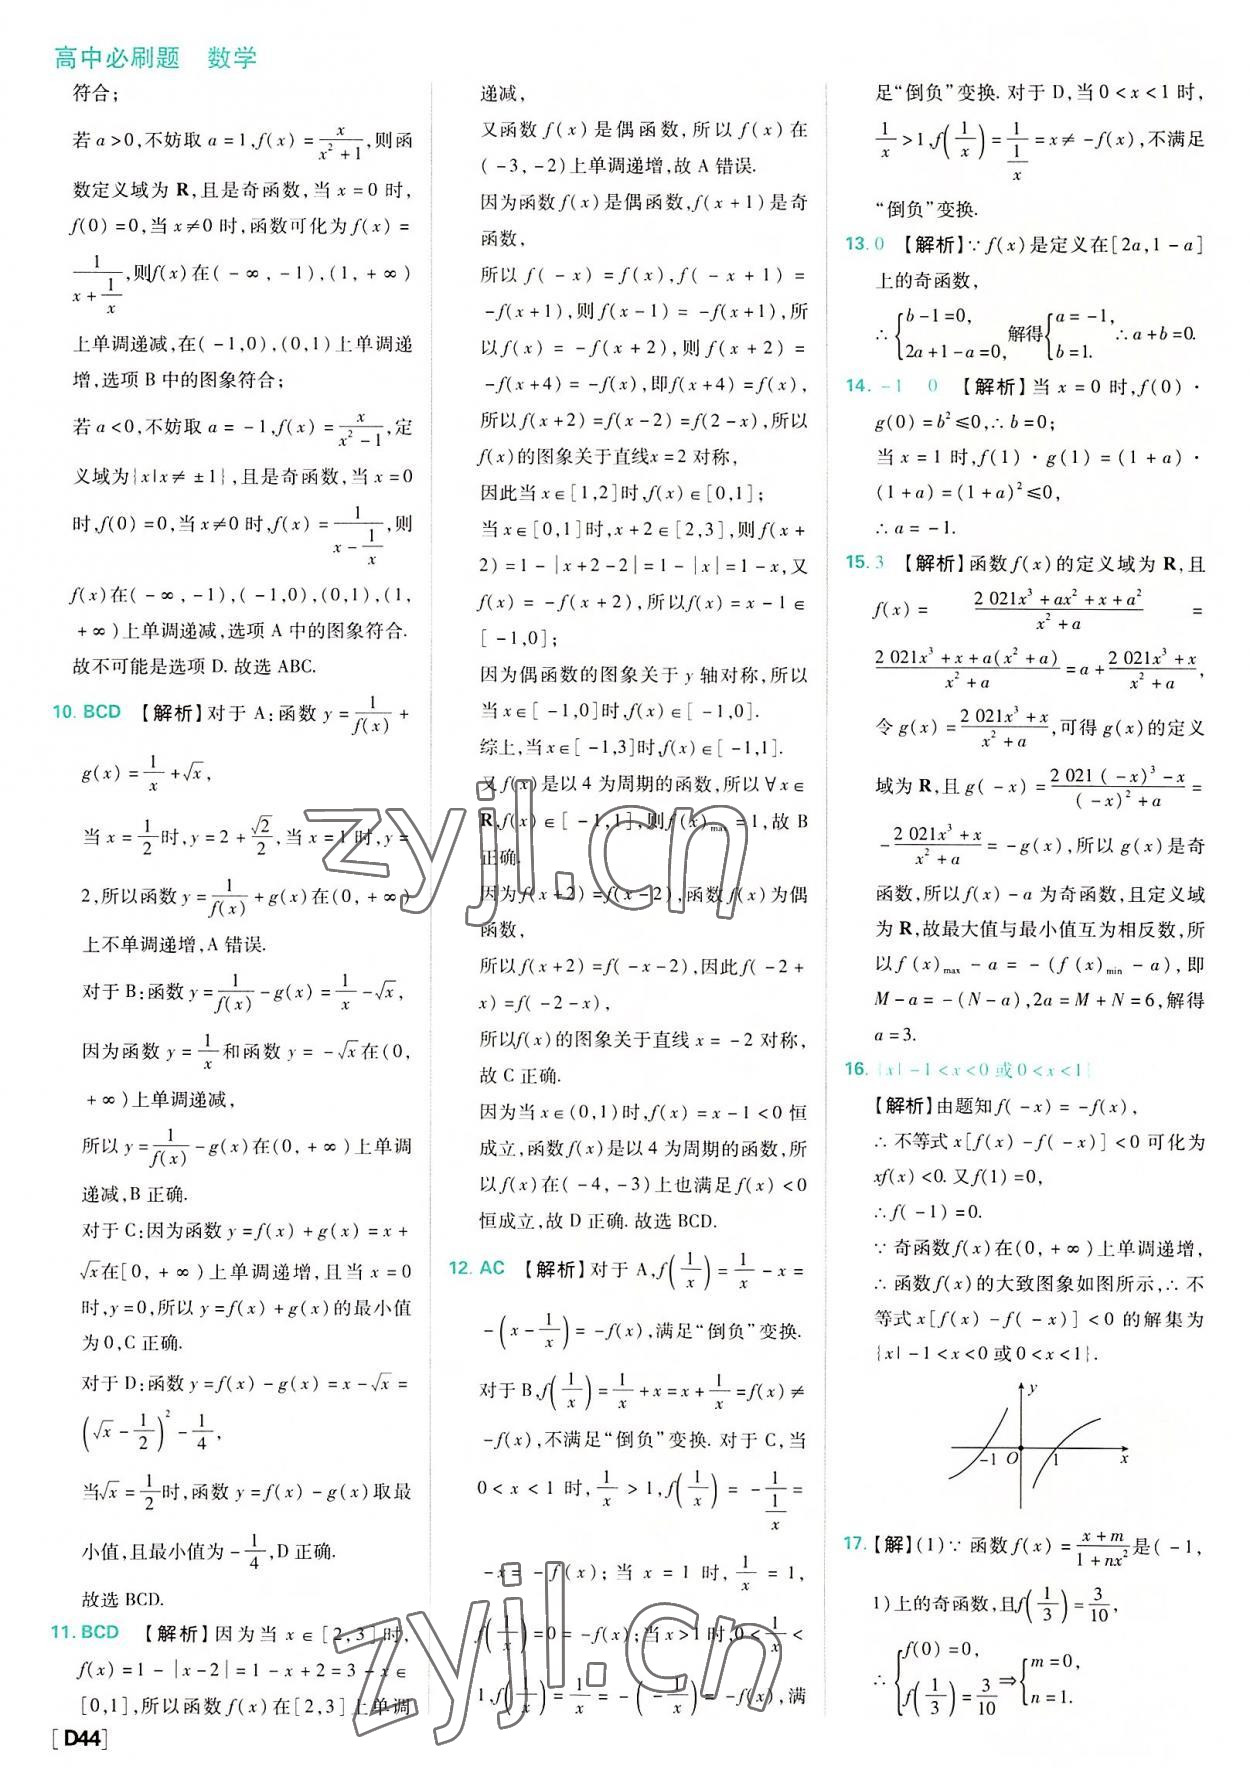 高中必刷题 数学
符合;
若 a>0,不妨取 a=1,f(x)=x/(x²+1),则函
数定义域为 R,且是奇函数,当 x=0 时,
f(0)=0,当 x≠0 时,函数可化为 f(x)=
1/(x+1/x),则f(x)在(-∞,-1),(1,+∞)
上单调递减,在(-1,0),(0,1)上单调递
增,选项 B 中的图象符合;
若 a<0,不妨取 a=-1,f(x)=x/(x²-1),定
义域为{x|x≠±1},且是奇函数,当 x=0
时,f(0)=0,当 x≠0 时,f(x)=1/(x-1/x),则
f(x)在(-∞,-1),(-1,0),(0,1),(1,
+∞)上单调递减,选项 A 中的图象符合.
故不可能是选项 D. 故选 ABC.
10. BCD 【解析】对于 A:函数 y=1/f(x)+
g(x)=1/x+√x,
当 x=1/2时,y=2+√2/2,当 x=1 时,y=
2,所以函数 y=1/f(x)+g(x)在(0,+∞)
上不单调递增,A 错误.
对于 B:函数 y=1/f(x)-g(x)=1/x-√x,
因为函数 y=1/x和函数 y=-√x在(0,
+∞)上单调递减,
所以 y=1/f(x)-g(x)在(0,+∞)上单调
递减,B 正确.
对于 C:因为函数 y=f(x)+g(x)=x+
√x在[0,+∞)上单调递增,且当 x=0
时,y=0,所以 y=f(x)+g(x)的最小值
为 0,C 正确.
对于 D:函数 y=f(x)-g(x)=x-√x=
(√x-1/2)²-1/4,
当√x=1/2时,函数 y=f(x)-g(x)取最
小值,且最小值为-1/4,D 正确.
故选 BCD.
11. BCD 【解析】因为当 x∈[2,3]时,
f(x)=1-|x-2|=1-x+2=3-x∈
[0,1],所以函数 f(x)在[2,3]上单调
递减,
又函数 f(x)是偶函数,所以 f(x)在
(-3,-2)上单调递增,故 A 错误.
因为函数 f(x)是偶函数,f(x+1)是奇
函数,
所以 f(-x)=f(x),f(-x+1)=
-f(x+1),则 f(x-1)=-f(x+1),所
以 f(x)=-f(x+2),则 f(x+2)=
-f(x+4)=-f(x),即f(x+4)=f(x),
所以 f(x+2)=f(x-2)=f(2-x),所以
f(x)的图象关于直线x=2 对称,
因此当 x∈[1,2]时,f(x)∈[0,1];
当 x∈[0,1]时,x+2∈[2,3],则 f(x+
2)=1-|x+2-2|=1-|x|=1-x,又
f(x)=-f(x+2),所以f(x)=x-1∈
[-1,0];
因为偶函数的图象关于 y 轴对称,所以
当 x∈[-1,0]时,f(x)∈[-1,0].
综上,当 x∈[-1,3]时,f(x)∈[-1,1].
又 f(x)是以 4 为周期的函数,所以 ∀x∈
R,f(x)∈[-1,1],则f(x)max=1,故 B
正确.
因为f(x+2)=f(x-2),函数 f(x)为偶
函数,
所以f(x+2)=f(-x-2),因此f(-2+
x)=f(-2-x),
所以f(x)的图象关于直线 x=-2 对称,
故 C 正确.
因为当 x∈(0,1)时,f(x)=x-1<0 恒
成立,函数 f(x)是以 4 为周期的函数,所
以 f(x)在(-4,-3)上也满足 f(x)<0
恒成立,故 D 正确. 故选 BCD.
12. AC 【解析】对于 A,f(1/x)=1/x-x=
-(x-1/x)=-f(x),满足“倒负”变换.
对于 B,f(1/x)=1/x+x=x+1/x=f(x)≠
-f(x),不满足“倒负”变换. 对于 C,当
0<x<1 时,1/x>1,f(1/x)=-1/(1/x)=
-x=-f(x);当 x=1 时,1/x=1,
f(1/x)=0=-f(x);当x>1时,0<1/x<
1,f(1/x)=1/x=-(-1/x)=-f(x),满
足“倒负”变换. 对于 D,当 0<x<1 时,
1/x>1,f(1/x)=1/(1/x)=x≠-f(x),不满足
“倒负”变换.
13. 0 【解析】∵f(x)是定义在[2a,1-a]
上的奇函数,
∴{b-1=0, 2a+1-a=0, 解得{a=-1, b=1. ∴a+b=0.
14. -1 0 【解析】当 x=0 时,f(0)·
g(0)=b²≤0,∴b=0;
当 x=1 时,f(1)·g(1)=(1+a)·
(1+a)=(1+a)²≤0,
∴a=-1.
15. 3 【解析】函数 f(x)的定义域为 R,且
f(x)=(2 021x³+ax²+x+a²)/(x²+a)=
(2 021x³+x+a(x²+a))/(x²+a)=a+(2 021x³+x)/(x²+a),
令 g(x)=(2 021x³+x)/(x²+a),可得 g(x)的定义
域为 R,且 g(-x)=(2 021(-x)³-x)/((-x)²+a)=
-(2 021x³+x)/(x²+a)=-g(x),所以 g(x)是奇
函数,所以 f(x)-a 为奇函数,且定义域
为 R,故最大值与最小值互为相反数,所
以 f(x)max-a=-(f(x)min-a),即
M-a=-(N-a),2a=M+N=6,解得
a=3.
16. {x|-1<x<0 或 0<x<1}
【解析】由题知 f(-x)=-f(x),
∴不等式 x[f(x)-f(-x)]<0 可化为
xf(x)<0. 又 f(1)=0,
∴f(-1)=0.
∵奇函数 f(x)在(0,+∞)上单调递增,
∴函数 f(x)的大致图象如图所示,∴不
等式 x[f(x)-f(-x)]<0 的解集为
{x|-1<x<0 或 0<x<1}.
y
-1 O 1 x
17. 【解】(1)∵函数 f(x)=(x+m)/(1+nx²)是(-1,
1)上的奇函数,且f(1/3)=3/10,
∴{f(0)=0, f(1/3)=3/10 ⇒{m=0, n=1.
[D44]
zyjl.cn
zyjl.cn